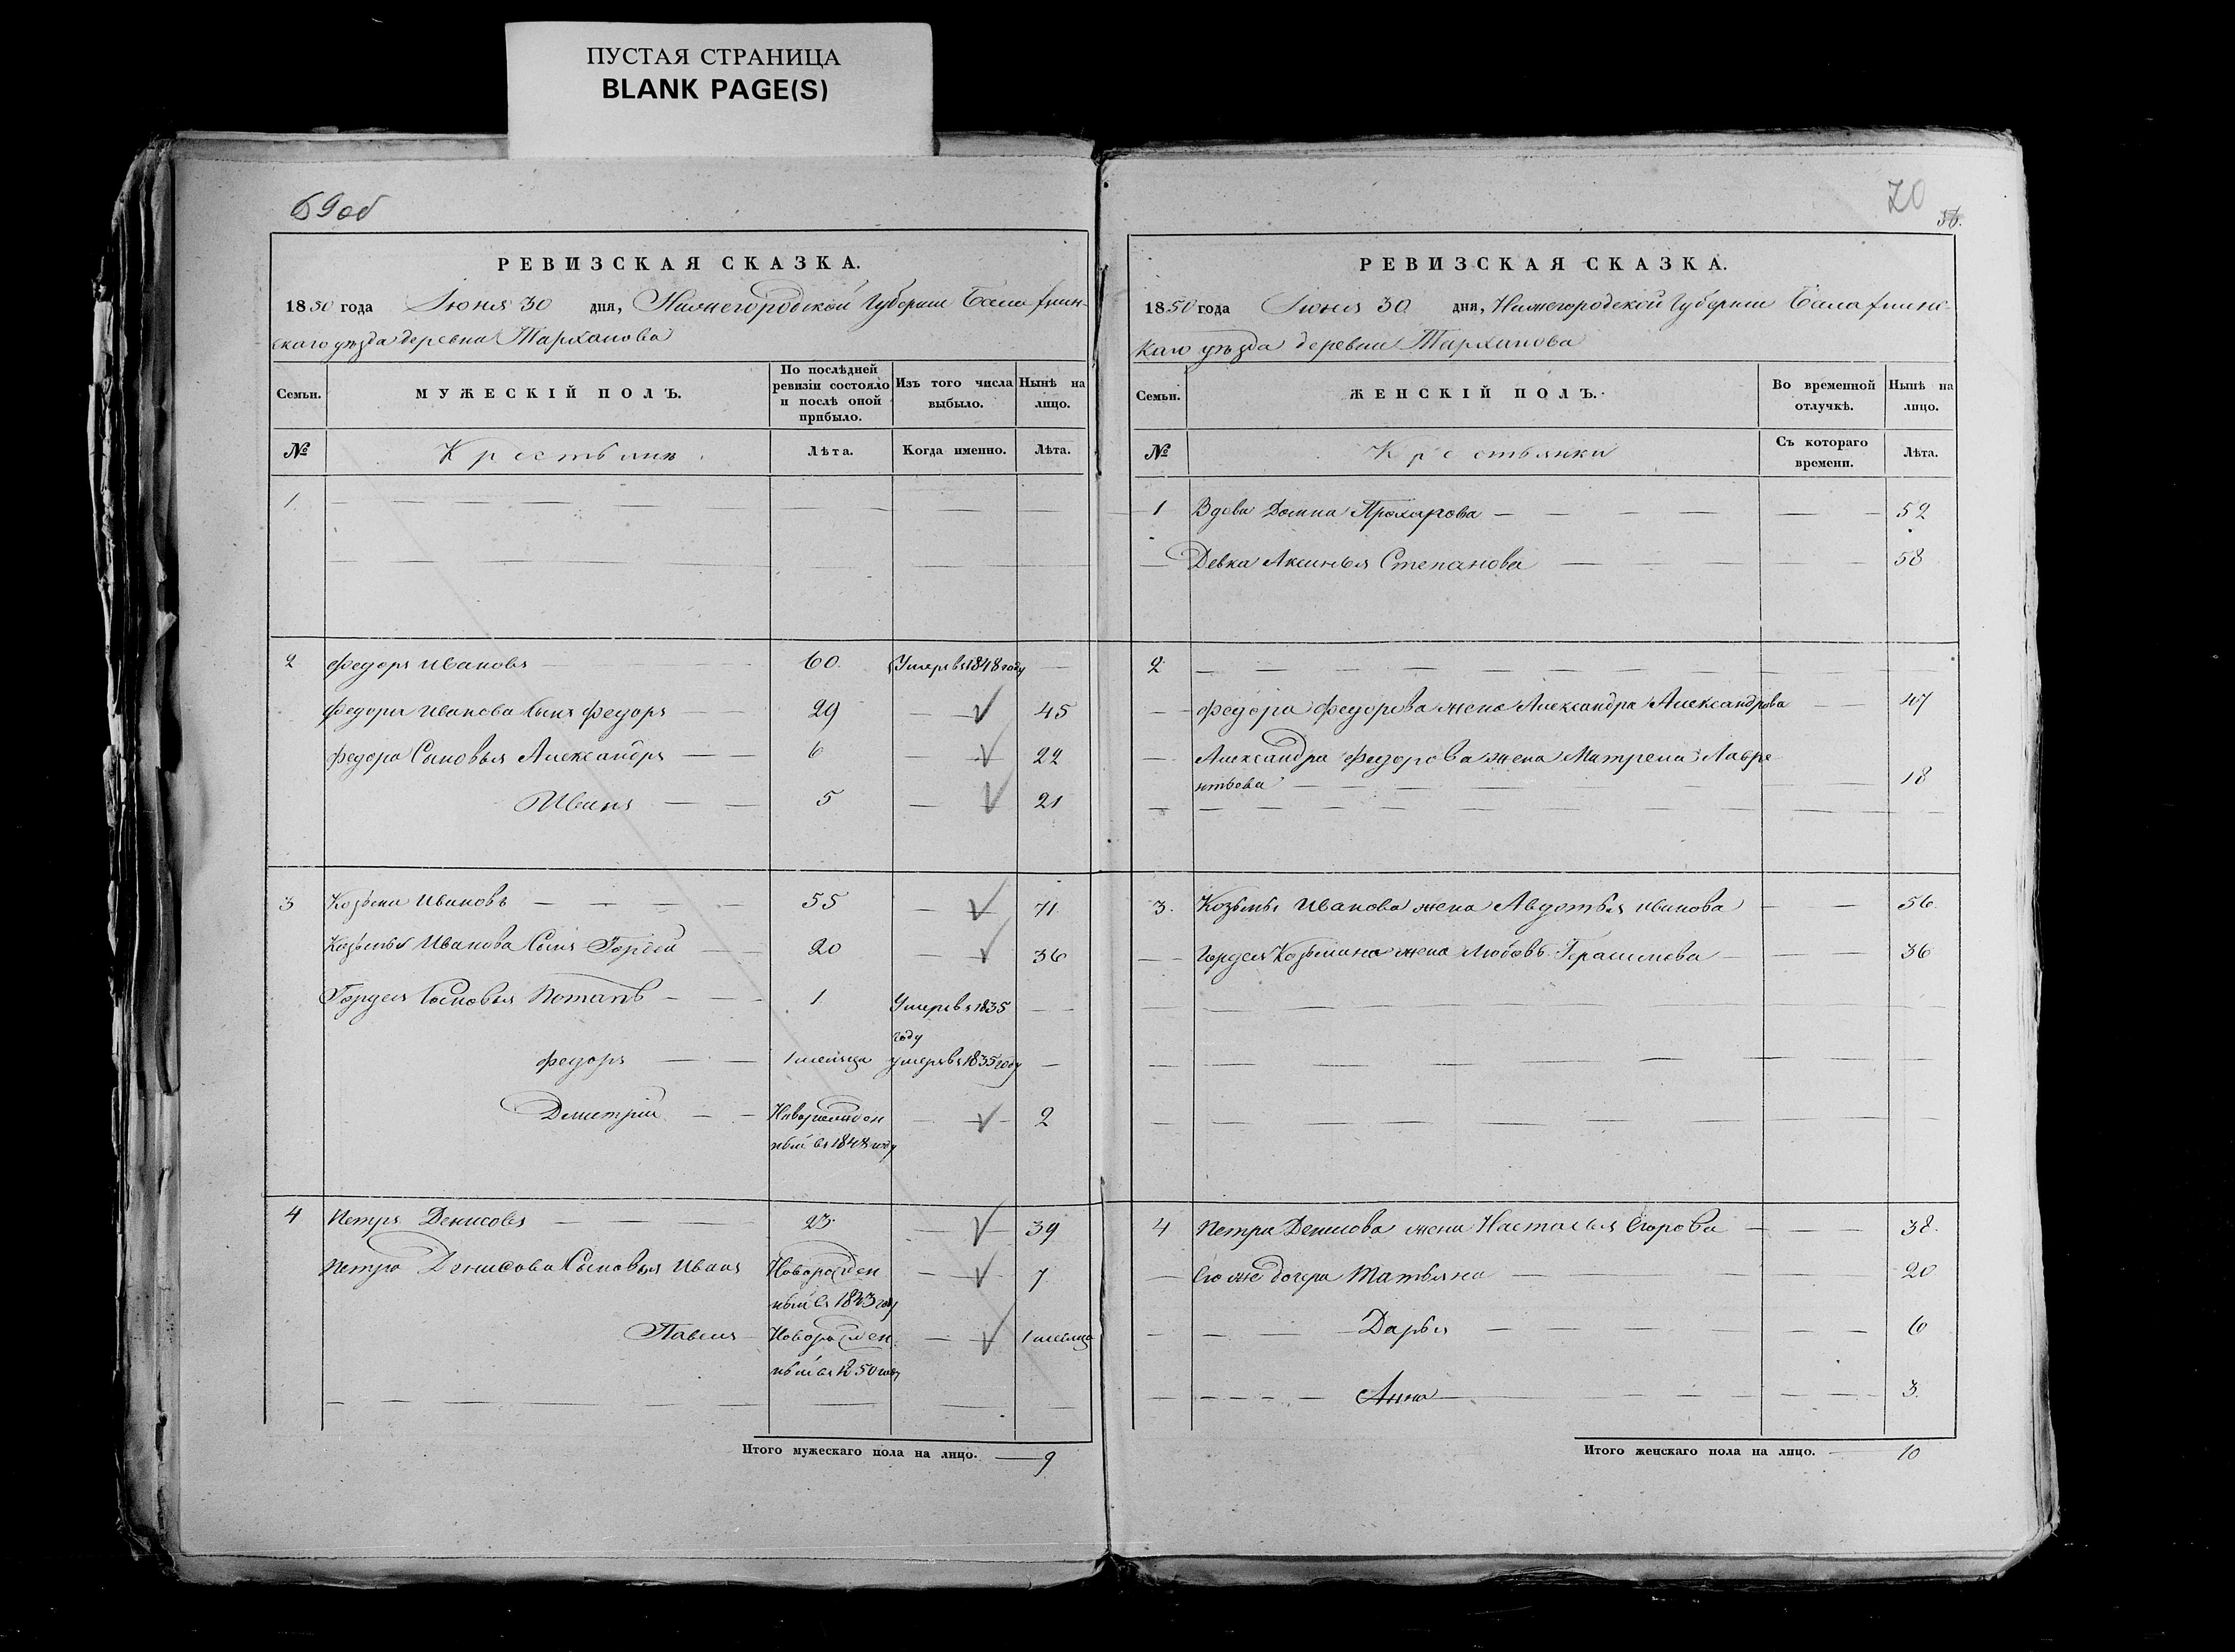 ПУСТАЯ СТРАНИЦА
BLANK PAGE(S)
69об
РЕВИЗСКАЯ СКАЗКА.
1850 года Июня 30 дня, Нижегородской Губернии Балахнин-
скаго уѣзда деревна Тарханова
Семьи. МУЖЕСКІЙ ПОЛЪ. По послѣдней ревизіи состояло и послѣ оной прибыло. Изъ того числа выбыло. Нынѣ на лицо.
№ Крестьяне. Лѣта. Когда именно. Лѣта.
1.
2 Федоръ Ивановъ 60. Умеръ въ 1848 году
Федора Иванова Сынъ Федоръ 29 45
Федора Сыновья Александръ 6 22
Иванъ 5 21
3 Козьма Ивановъ 55 71
Козьмы Иванова Сынъ Гордей 20 36
Гордея Сыновья Потапъ 1 Умеръ въ 1835
году
Федоръ 1 месяца умеръ въ 1835 году
Дмитрій Новорожден 2
ный въ 1848 году
4 Петръ Денисовъ 23. 39
Петра Денисова Сыновья Иванъ Новорожден 7
ный въ 1843 году
Павелъ Новорожден 1 месяца
ный въ 1850 году
Итого мужескаго пола на лицо. 9
70
36.
РЕВИЗСКАЯ СКАЗКА.
1850 года Июня 30 дня, Нижегородской Губернии Балахнинс-
каго уѣзда деревни Тарханова
Семьи. ЖЕНСКІЙ ПОЛЪ. Во временной отлучкѣ. Нынѣ на лицо.
№ Крестьянки Съ котораго времени. Лѣта.
1 Вдова Домна Прохарова 52
Девка Аксинья Степанова 58
2
Федора Федорова жена Александра Александрова 47
Александра Федорова жена Матрена Лавре
нтьева 18
3. Козьмы Иванова жена Авдотья Иванова 56.
Гордея Козьмина жена Любовь Герасимова 36
4 Петра Денисова жена Настасья Егорова 38.
Его же дочери Татьяна 20
Дарья 6
Анна 3.
Итого женскаго пола на лицо. 10